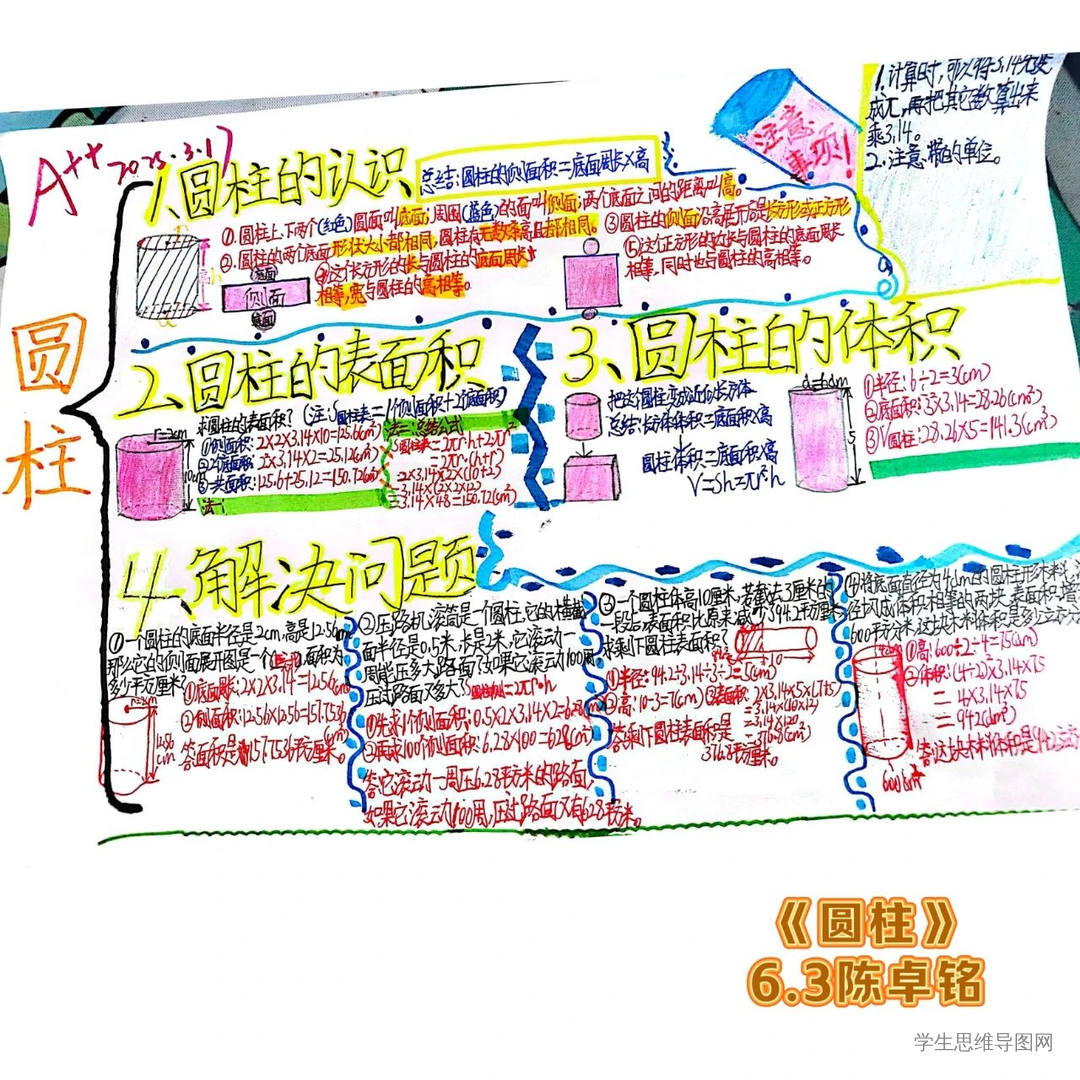 A++ 2025.3.17
圆柱
1、圆柱的认识
总结:圆柱的侧面积=底面周长×高
①.圆柱上、下两个(红色)圆面叫底面;周围(蓝色)的面叫侧面;两个底面之间的距离叫高。
②.圆柱的两个底面形状大小都相同,圆柱有无数条高且都相同。
③圆柱的侧面沿高展开后是长方形或正方形
④这个长方形的长与圆柱的底面周长
相等,宽与圆柱的高相等。
底面
侧面
底面
⑤这个正方形的边长与圆柱的底面周长
相等。同时也与圆柱的高相等。
注意
事项!
1.计算时,可以将3.14先变
成π,再把其它数算出来
乘3.14。
2.注意带的单位。
2、圆柱的表面积
求圆柱的表面积?(注:圆柱表=1个侧面积+2个底面积)
r=2cm
①侧面积:2×2×3.14×10=125.6(cm²)
②2个底面积:2²×3.14×2=25.12(cm²)
③表面积:125.6+25.12=150.72(cm²)
法一
法二:总结公式
S圆柱表=2πr²+2πr
=2πr(h+r)
=2×3.14×2×(10+2)
=3.14×(2×2×12)
=3.14×48=150.72(cm²)
3、圆柱的体积
把这个圆柱变成近似长方体
总结:长方体体积=底面积×高
圆柱体积=底面积×高
V=Sh=πr²h
d=6dm
5
①半径:6÷2=3(cm)
②底面积:3²×3.14=28.26(cm²)
③V圆柱:28.26×5=141.3(cm³)
4、解决问题
①一个圆柱的底面半径是2cm,高是12.56cm
那么它的侧面展开图是一个 面积为
多少平方厘米?
①底面周长:2×2×3.14=12.56(cm)
②侧面积:12.56×12.56=157.7536
答面积是157.7536平方厘米。
r=2cm
12.56
cm
②压路机滚筒是一个圆柱,它的横截
面半径是0.5米,长是2米,它滚动一
周能压多大路面?如果它滚动100周,
压过路面又多大?
=2πr·h
①先求1个侧面积:0.5×2×3.14×2=6.28
②再求100个侧面积:6.28×100=628(m²)
答它滚动一周压6.28平方米的路面,
如果它滚动100周,压过路面又有628平方米。
③一个圆柱体高10厘米,若截去3厘米的
一段后表面积比原来减少94.2平方厘米
求剩下圆柱表面积?
①半径:94.2÷3.14÷3÷2=5(cm)
②高:10-3=7(cm)
③表面积:2×3.14×5×(7+5)
=3.14×(10×12)
=3.14×120
=376.8(cm²)
答剩下圆柱表面积是
376.8平方厘米。
④将底面直径为4dm的圆柱形木料
径切成体积相等的两块,表面积增
600平方分米,这块木料体积是多少立方分
①高:600÷2÷4=75(cm)
②体积:(4÷2)²×3.14×75
=4×3.14×75
=942(dm³)
答这块木料体积是942立方
《圆柱》
6.3陈卓铭
学生思维导图网